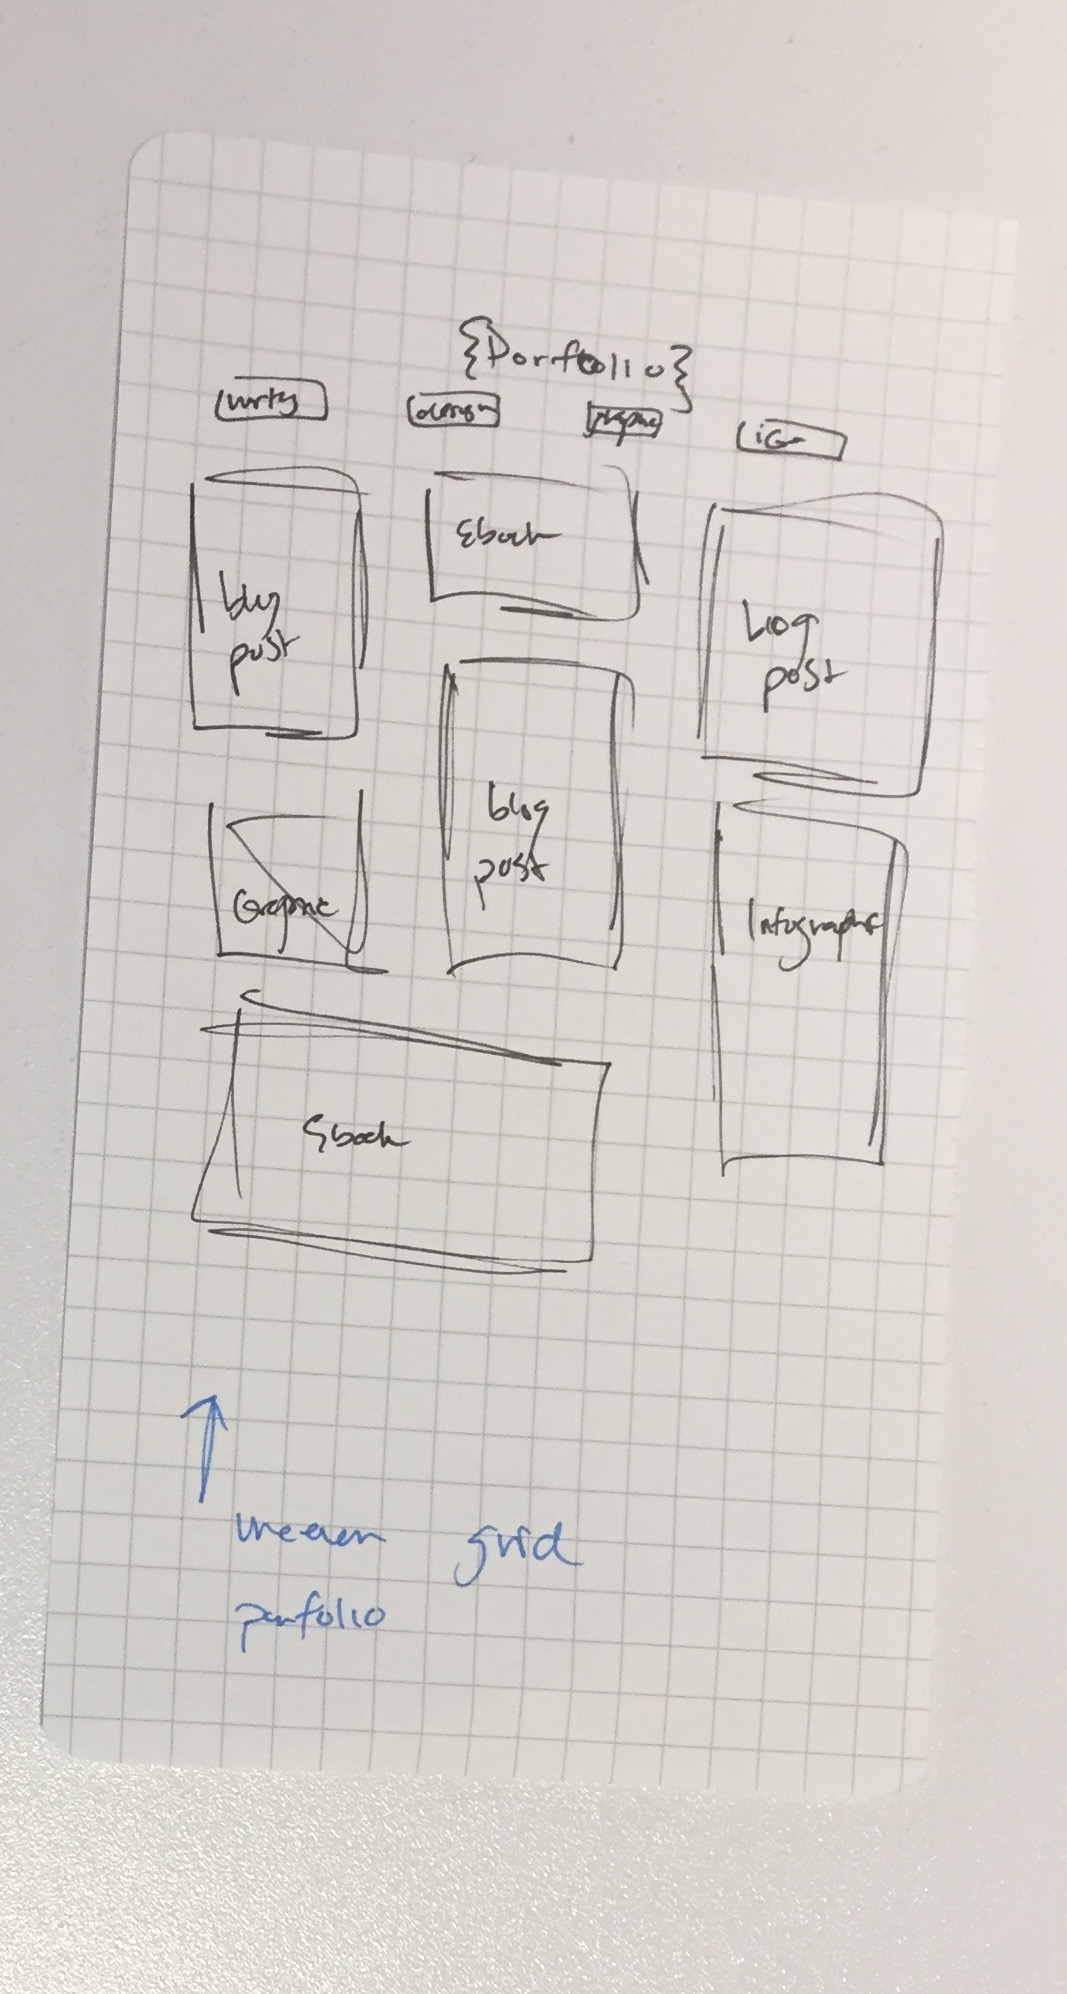 {Portfolio}
design
IG
blog
post
Ebook
blog
post
blog
post
Graphic
Infographic
Ebook
uneven grid
porfolio